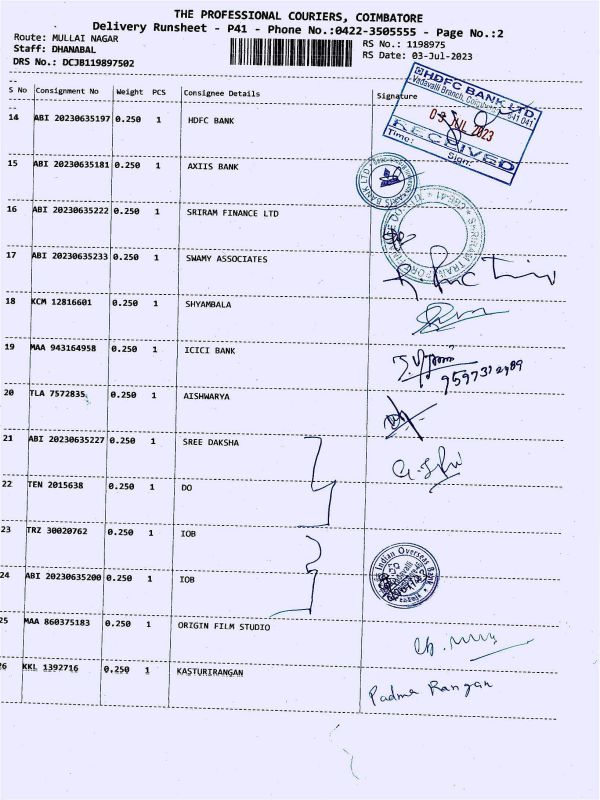 THE PROFESSIONAL COURIERS, COIMBATORE
Delivery Runsheet - P41 - Phone No.:0422-3505555 - Page No.:2
Route: MULLAI NAGAR RS No.: 1198975
Staff: DHANABAL RS Date: 03-Jul-2023
DRS No.: DCJB119897502
S No Consignment No Weight PCS Consignee Details Signature
HDFC BANK LTD.
Vadavalli Branch, 641 041
03 JUL 2023
RECEIVED
Time: Sign:
14 ABI 20230635197 0.250 1 HDFC BANK
15 ABI 20230635181 0.250 1 AXIIS BANK
16 ABI 20230635222 0.250 1 SRIRAM FINANCE LTD
17 ABI 20230635233 0.250 1 SWAMY ASSOCIATES
18 KCM 12816601 0.250 1 SHYAMBALA
19 MAA 943164958 0.250 1 ICICI BANK
20 TLA 7572835 0.250 1 AISHWARYA
21 ABI 20230635227 0.250 1 SREE DAKSHA
22 TEN 2015638 0.250 1 DO
23 TRZ 30020762 0.250 1 IOB
24 ABI 20230635200 0.250 1 IOB
Indian Overseas Bank
Vadavalli
25 MAA 860375183 0.250 1 ORIGIN FILM STUDIO
26 KKL 1392716 0.250 1 KASTURIRANGAN
Padma Rangan